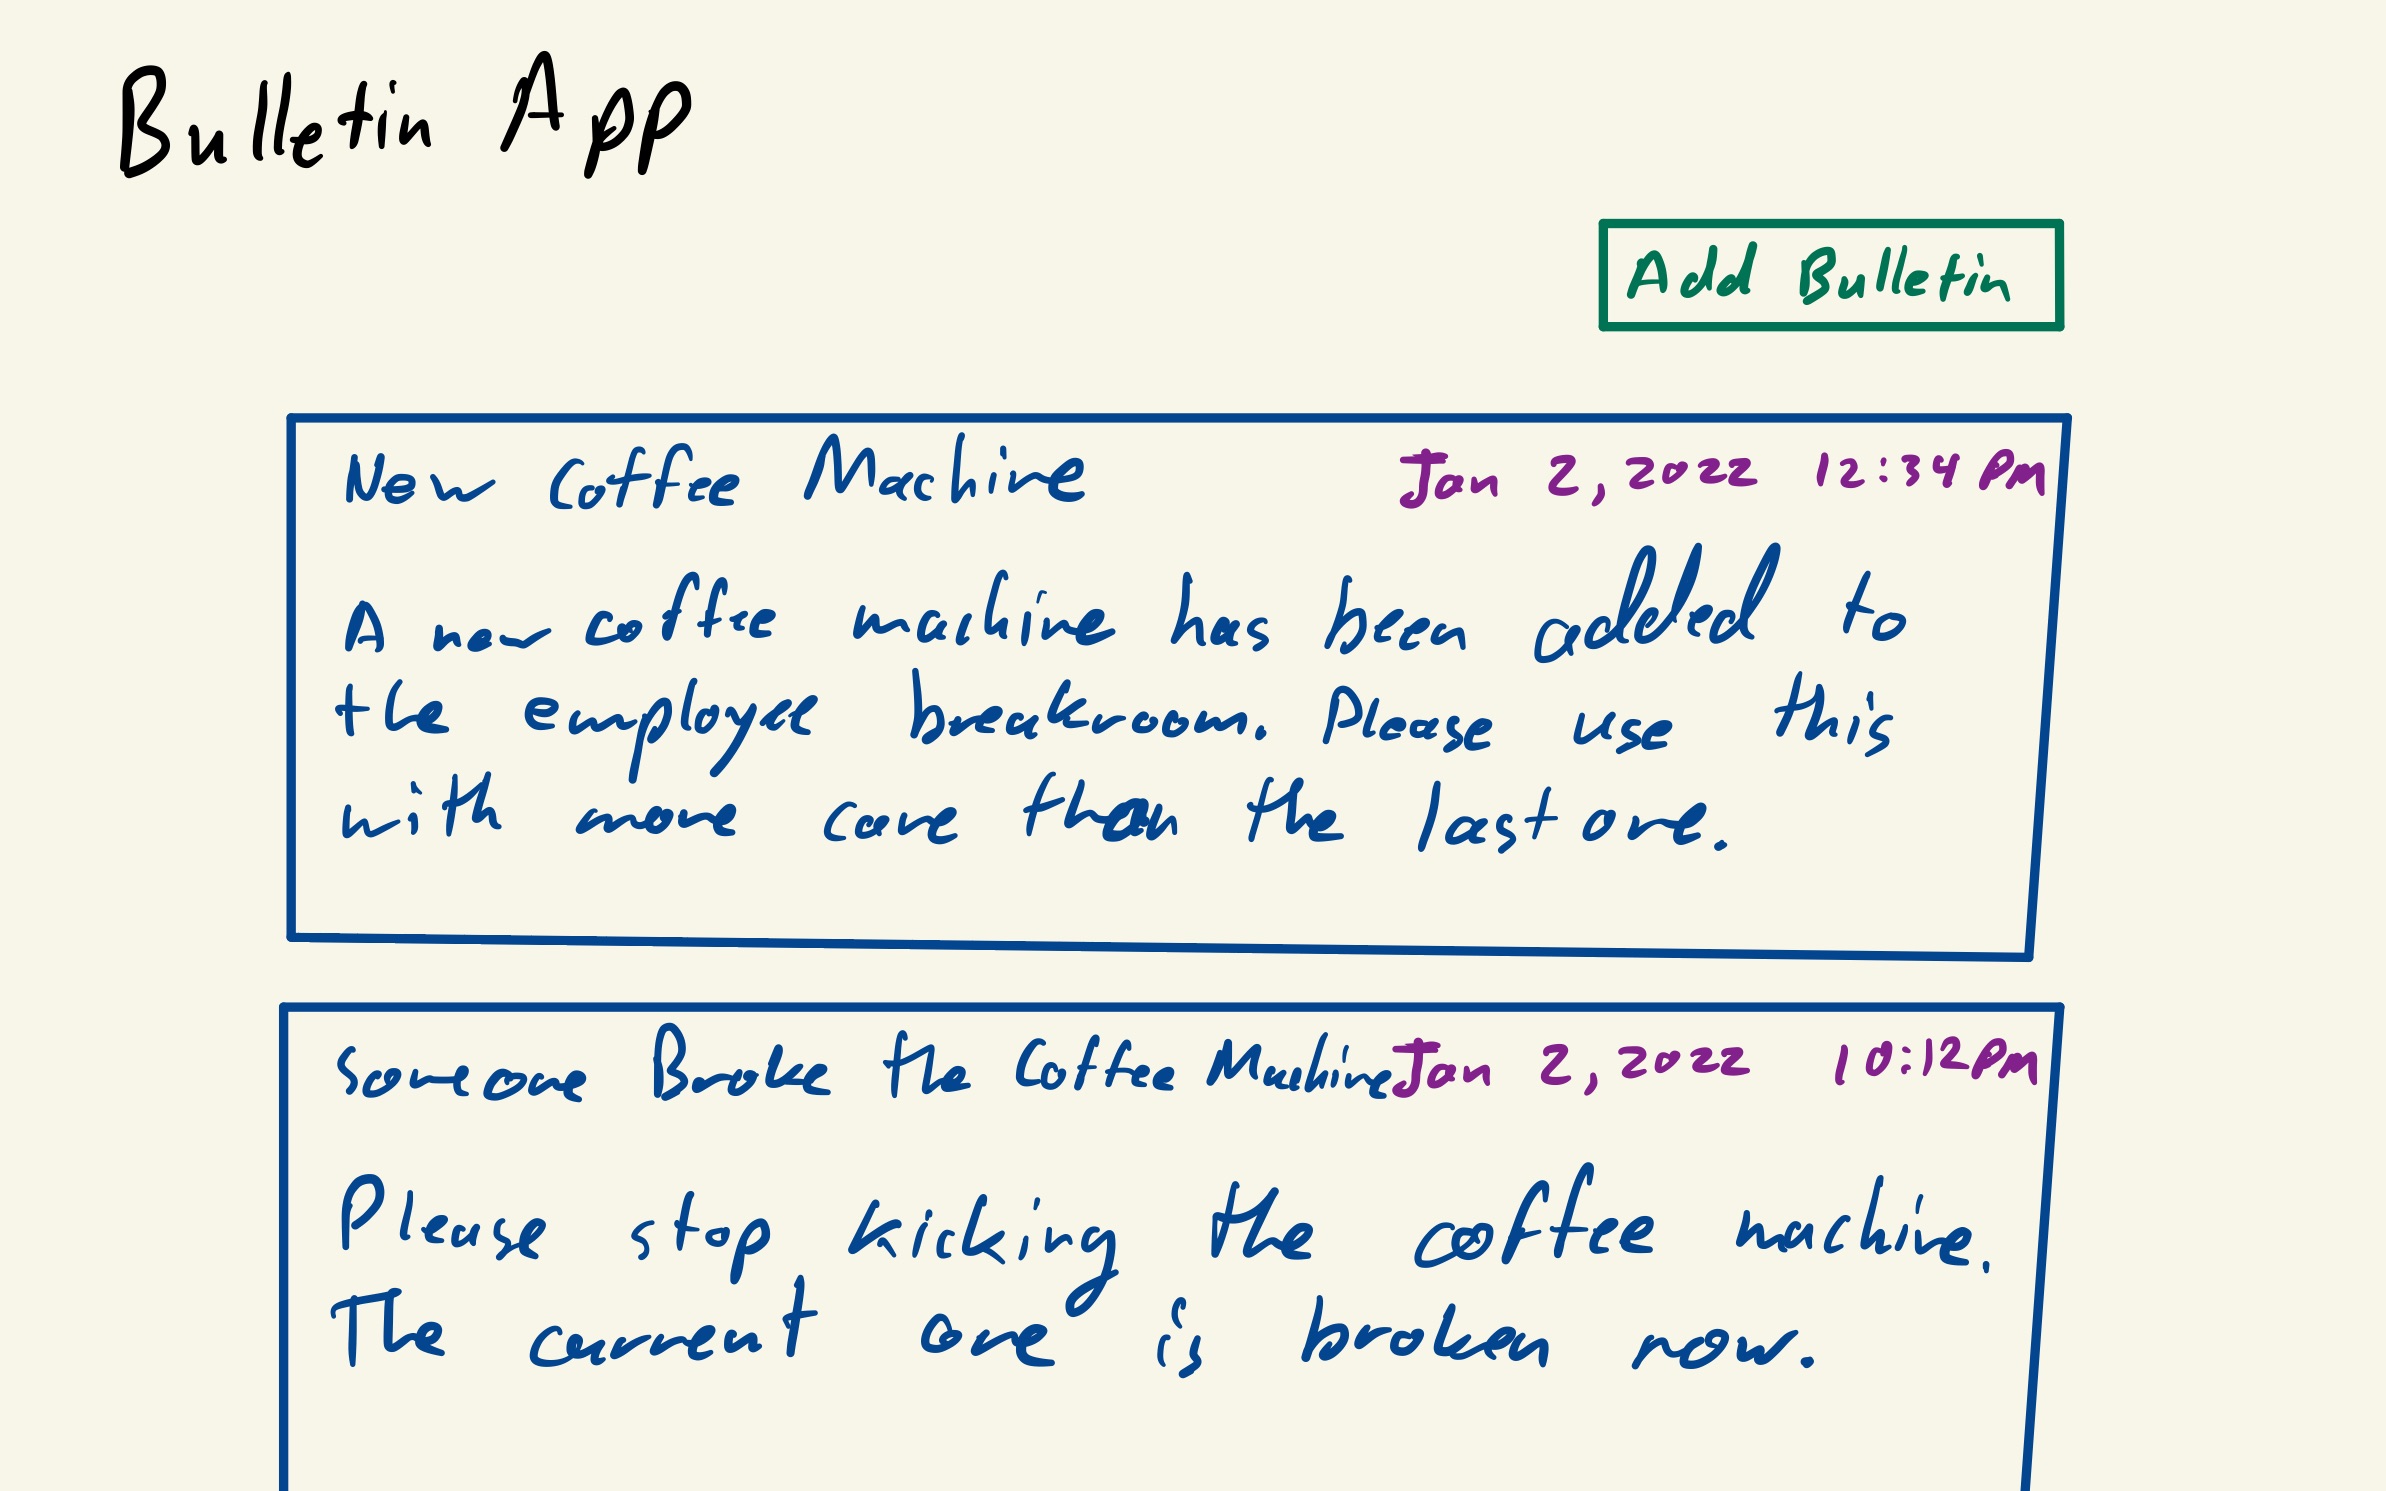 Bulletin App
Add Bulletin
New Coffee Machine Jan 2, 2022 12:34 PM
A new coffee machine has been added to
the employee breakroom. Please use this
with more care than the last one.
Someone Broke the Coffee Machine Jan 2, 2022 10:12 PM
Please stop kicking the coffee machine.
The current one is broken now.